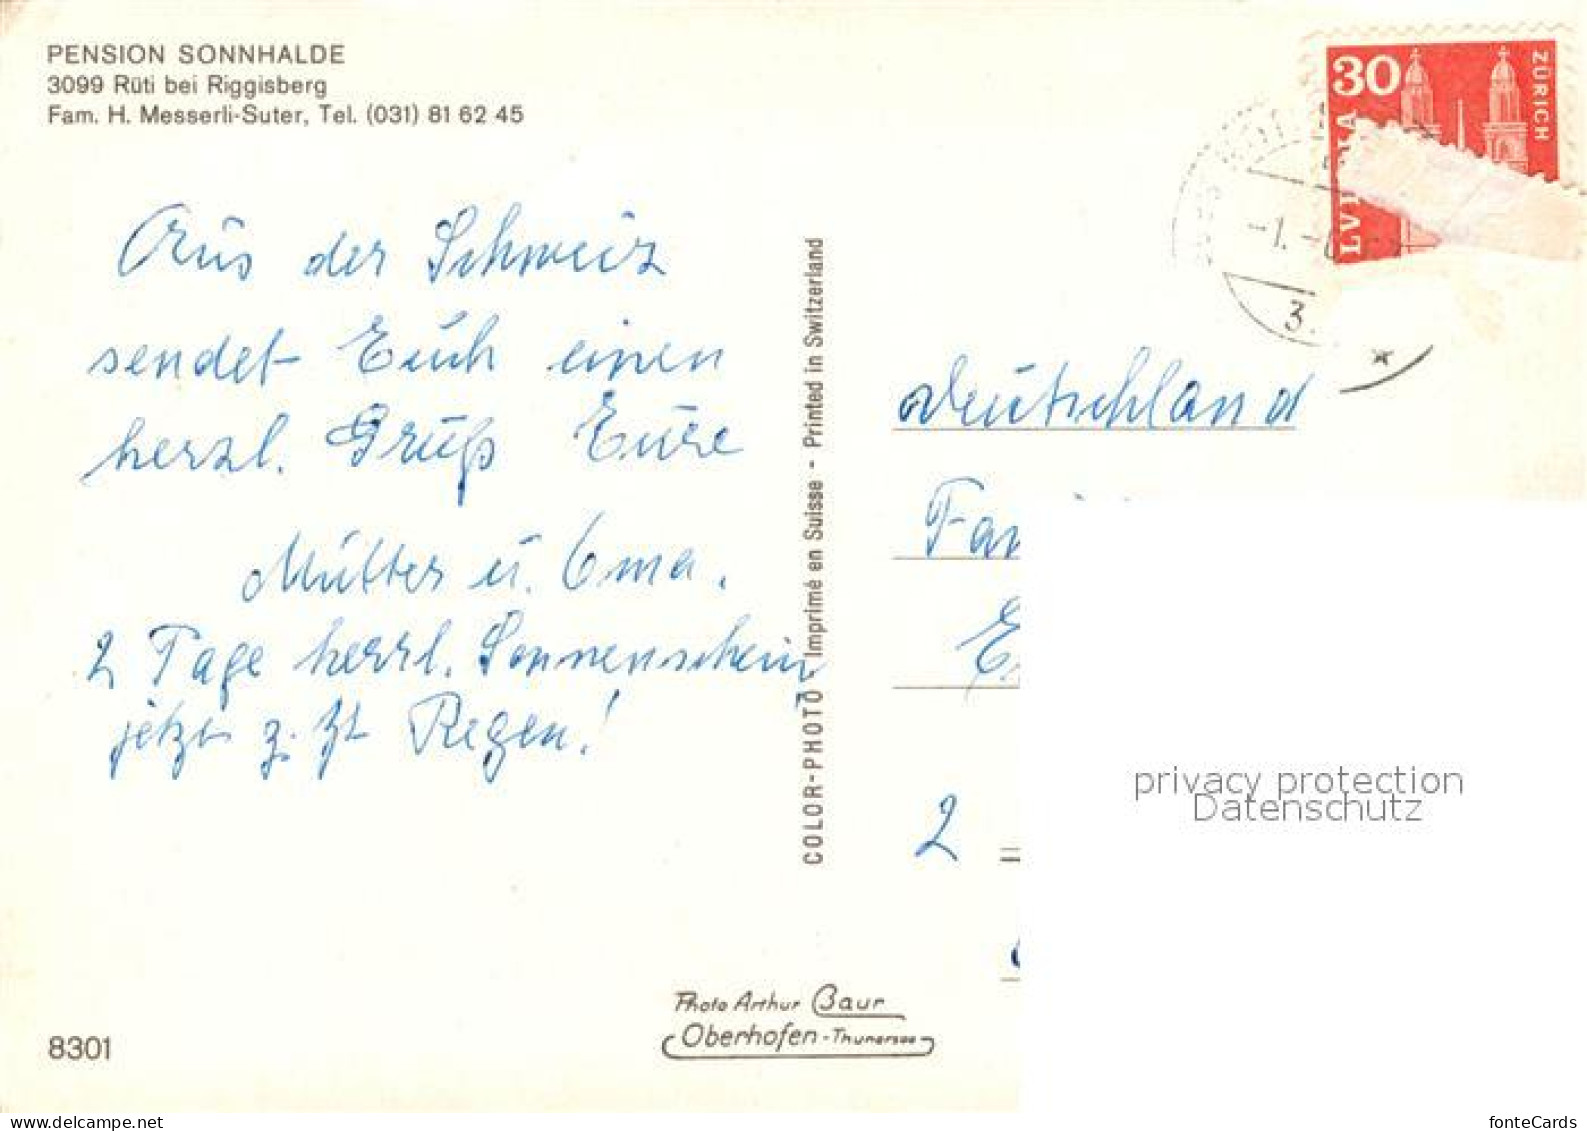 PENSION SONNHALDE
3099 Rüti bei Riggisberg
Fam. H. Messerli-Suter, Tel. (031) 81 62 45
30
ZÜRICH
-1.
3.
Aus der Schweiz
sendet Euch einen
herzl. Gruß Eure
Mutter u. Oma.
2 Tage herrl. Sonnenschein
jetzt z. Zt Regen!
COLOR-PHOTO - Imprimé en Suisse - Printed in Switzerland
Deutschland
2
privacy protection
Datenschutz
Photo Arthur Baur
Oberhofen - Thunersee
8301
www.delcampe.net
fonteCards